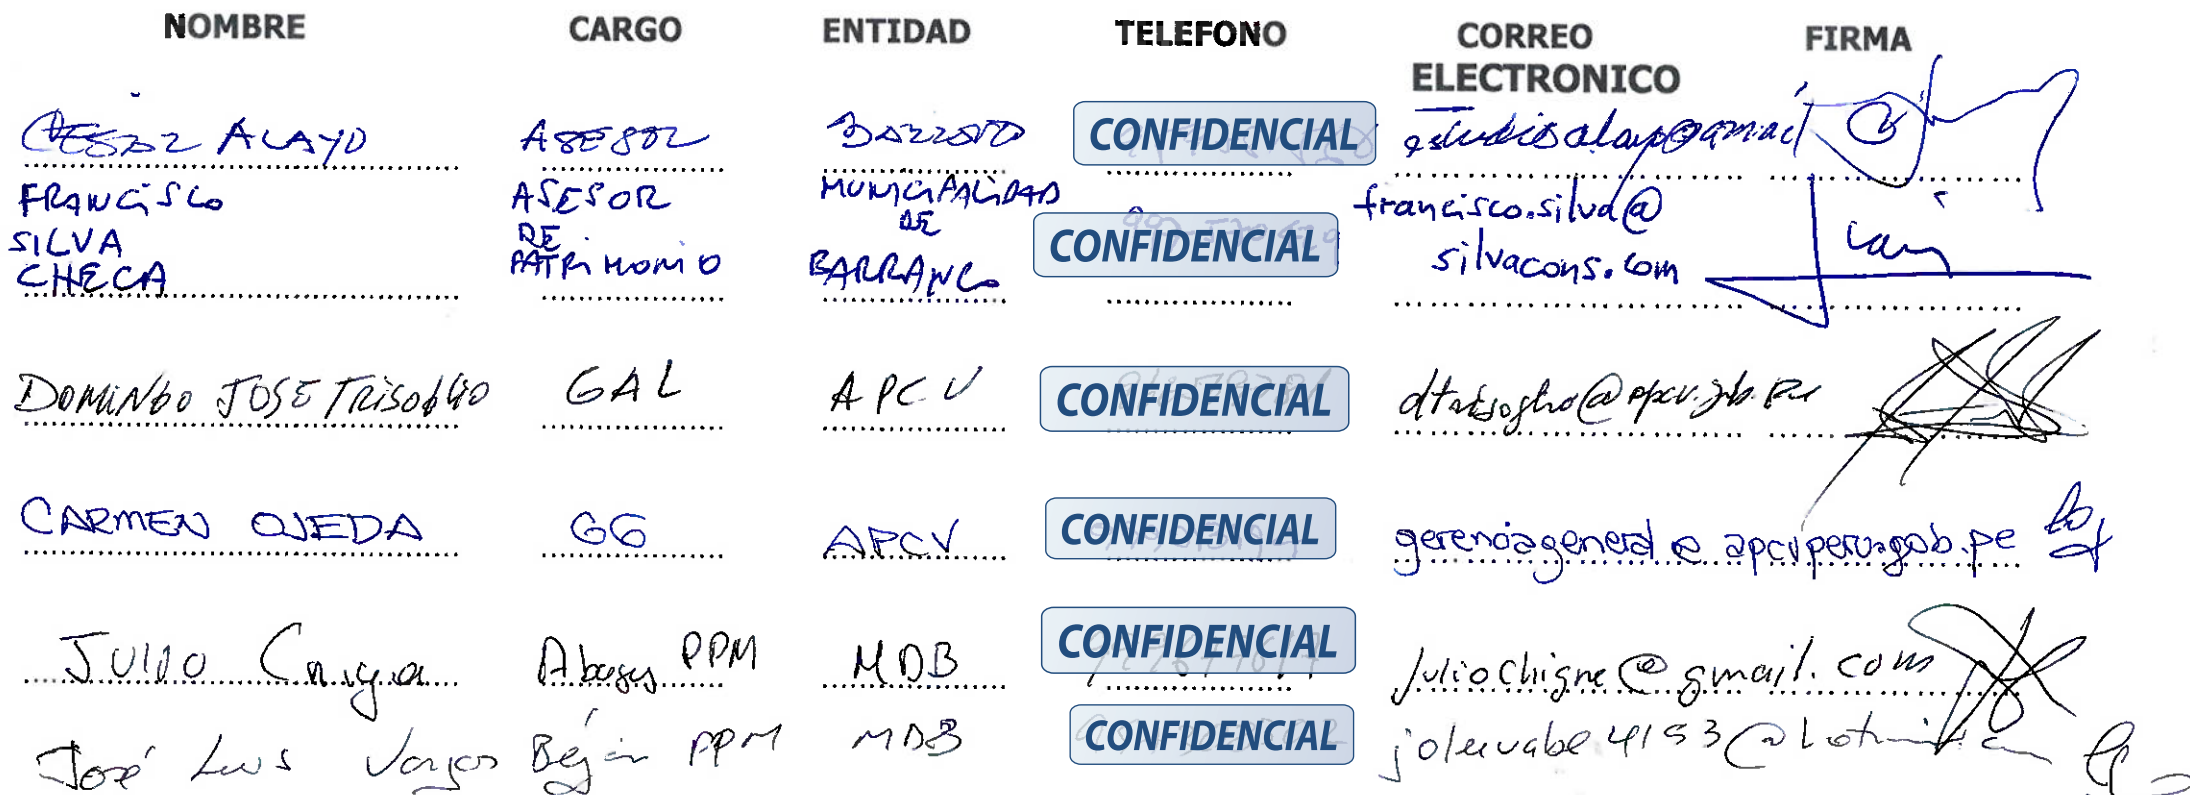 NOMBRE CARGO ENTIDAD TELEFONO CORREO ELECTRONICO FIRMA
CESAR ALAYO ASESOR CONFIDENCIAL
FRANCISCO SILVA CHECA ASESOR DE PATRIMONIO MUNICIPALIDAD DE BARRANCO CONFIDENCIAL francisco.silva@silvacons.com
DOMINGO JOSE TRISOGLIO GAL APCV CONFIDENCIAL
CARMEN OJEDA GG APCV CONFIDENCIAL gerenciageneral@apcvperu.gob.pe
JULIO PPM MDB CONFIDENCIAL Juliochigne@gmail.com
José Luis Vargas Béjar PPM MDB CONFIDENCIAL